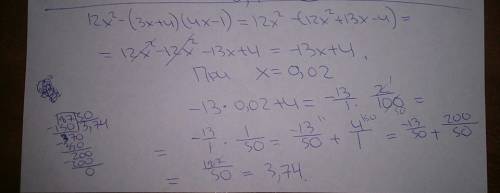 12x² - (3x+4)(4x-1) = 12x² - (12x² + 13x - 4) =
= 12x² - 12x² - 13x + 4 = -13x + 4.
При x = 0,02
-13 · 0,02 + 4 = -13/1 · 2¹/100 50 =
= -13/1 · 1/50 = -13/50 + 4/1 = -13/50 + 200/50
= 187/50 = 3,74.
187|50
-150|3,74
370
-350
200
200
0